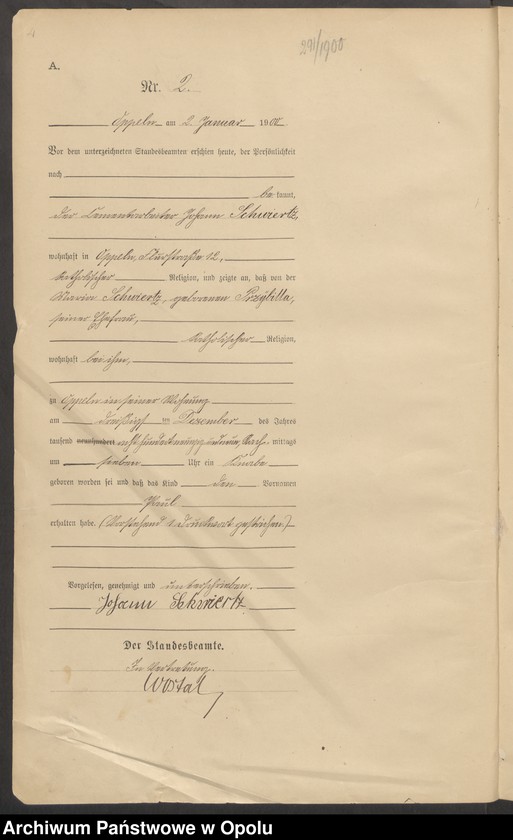 291/1900
A.
Nr. 2.
Oppeln am 2. Januar 1900
Vor dem unterzeichneten Standesbeamten erschien heute, der Persönlichkeit
nach
be kannt,
der Cementarbeiter Johann Schwiertz,
wohnhaft in Oppeln, 12,
katholischer Religion, und zeigte an, daß von der
Maria Schwiertz, geborenen Przybilla,
seiner Ehefrau,
katholischer Religion,
wohnhaft bei ihm,
zu Oppeln in seiner Wohnung
am dreißigsten Dezember des Jahres
tausend neunhundert acht hundert neunzig und neun, Nach mittags
um sieben Uhr ein Knabe
geboren worden sei und daß das Kind den Vornamen
Paul
erhalten habe. (Vorstehend 1 Druckwort gestrichen.)
Vorgelesen, genehmigt und unterschrieben.
Johann Schwiertz
Der Standesbeamte.
In Vertretung.
Wostal
Archiwum Państwowe w Opolu